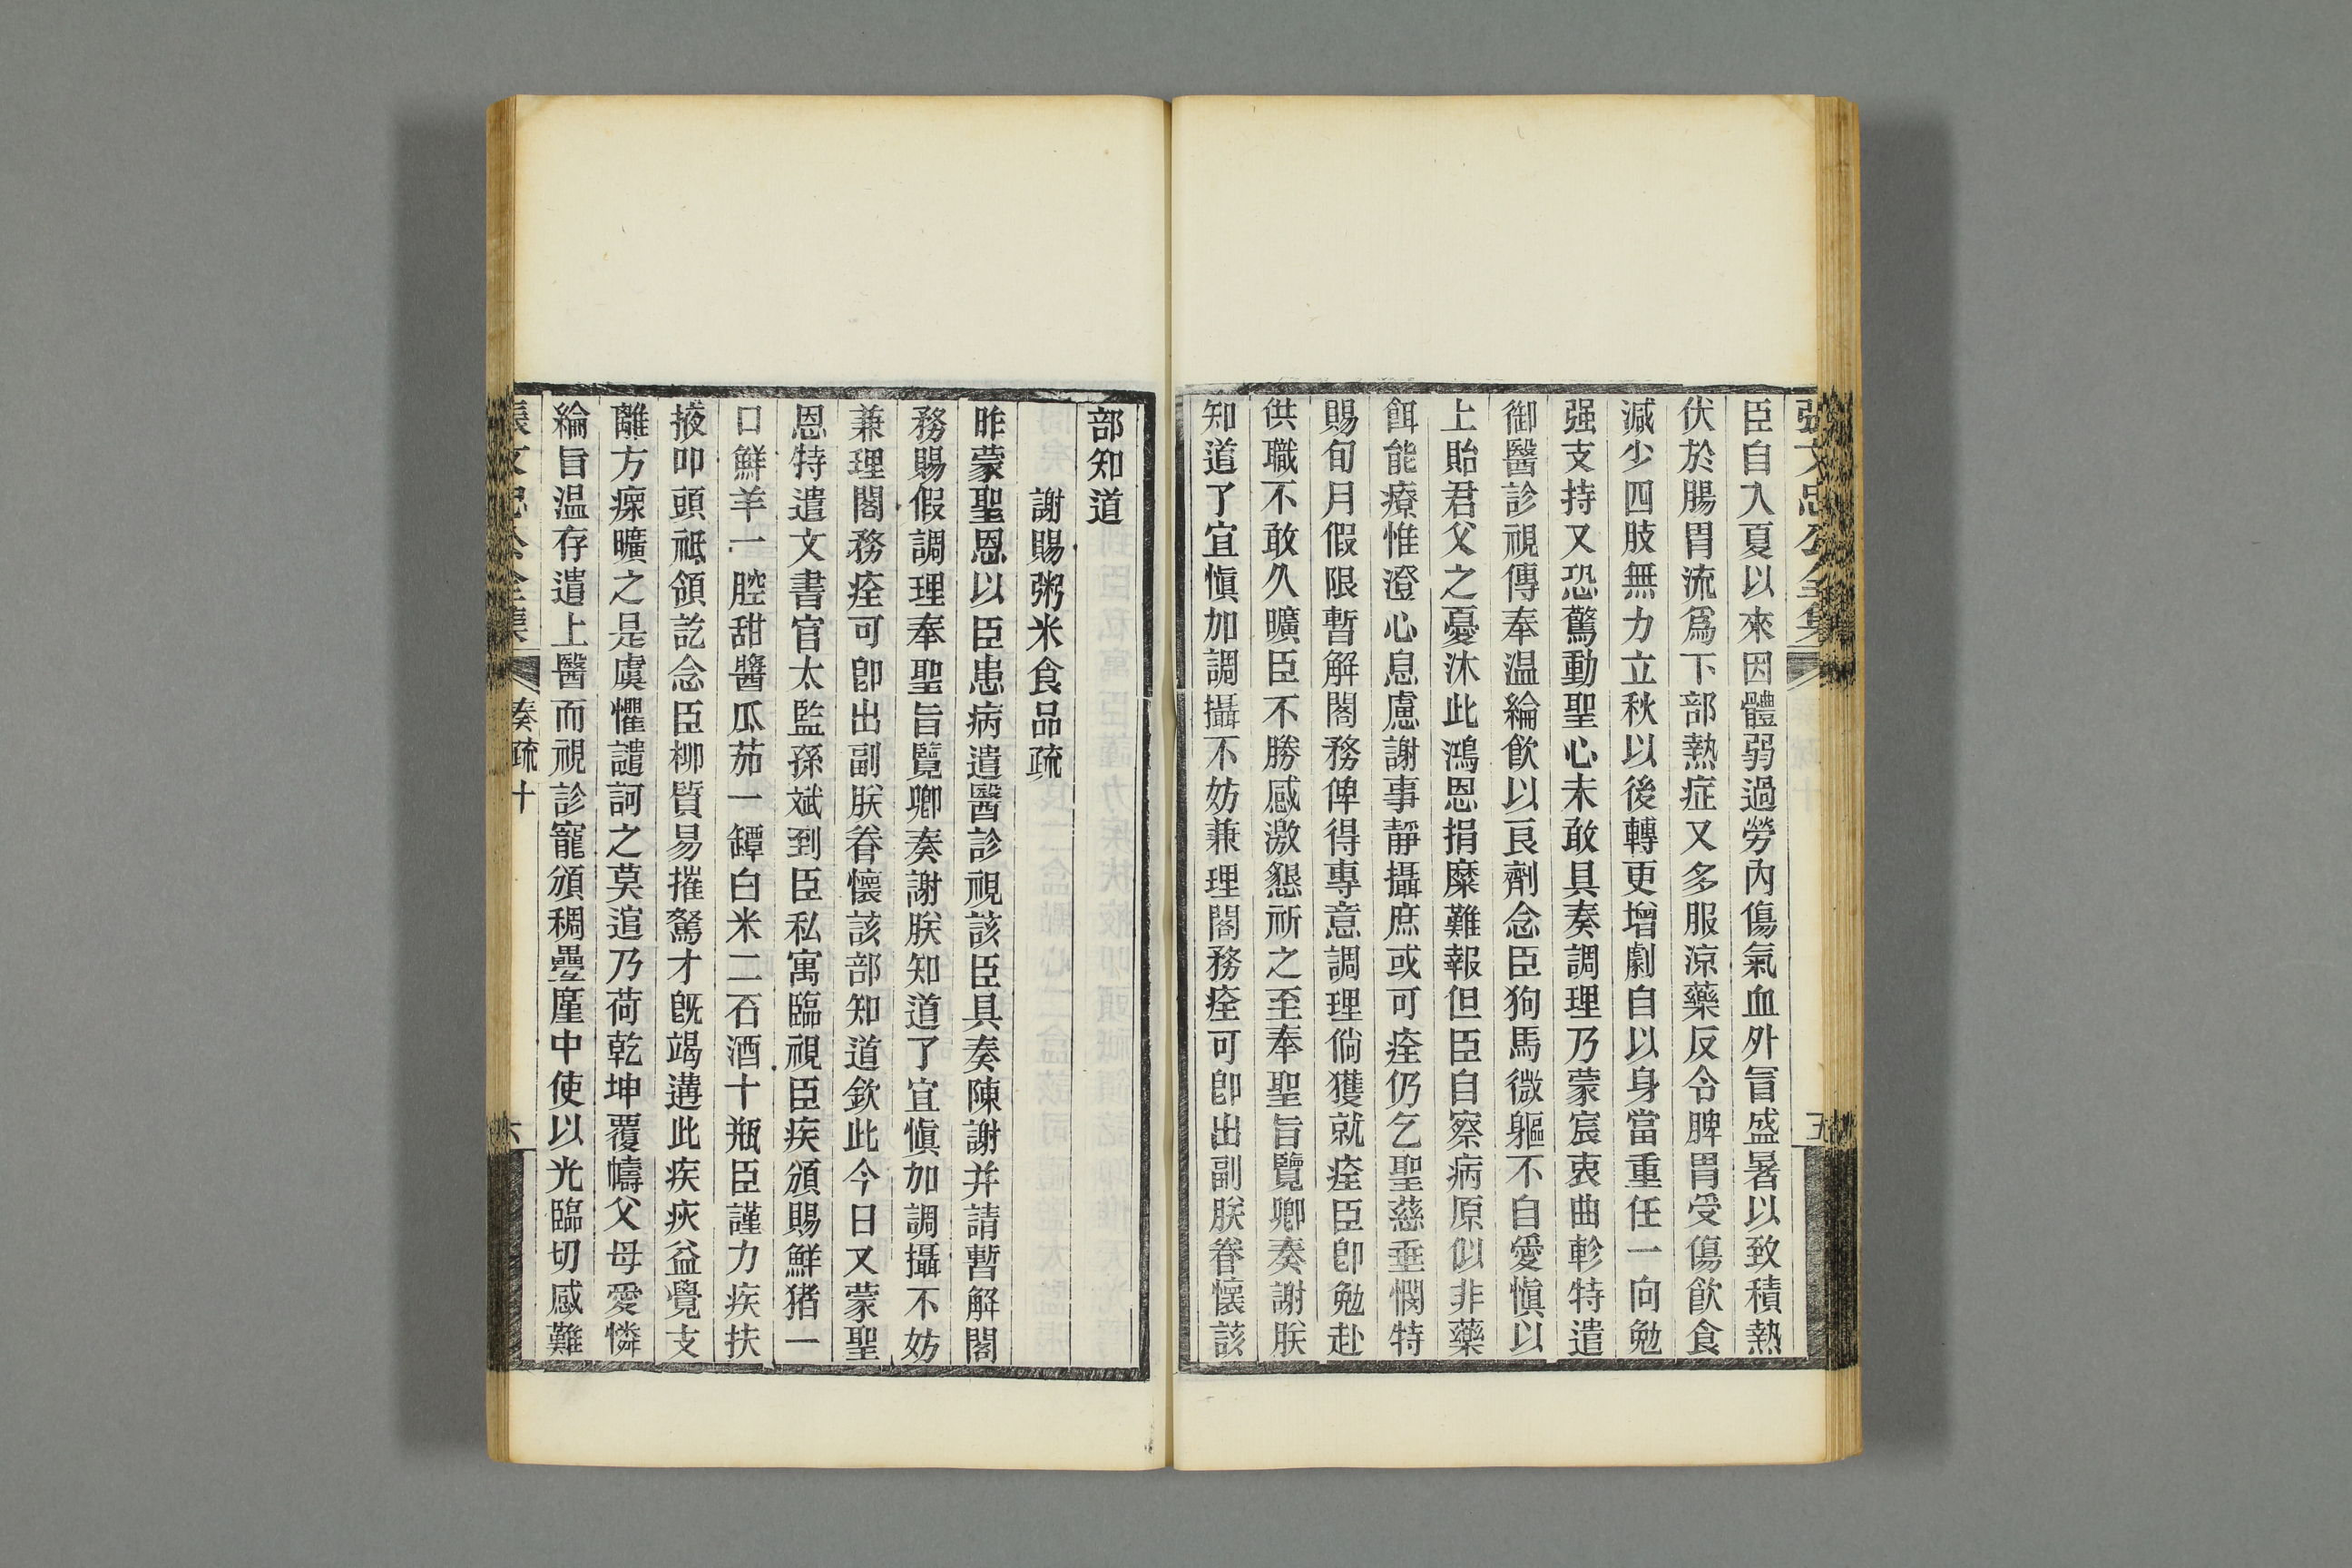 張文忠公全集
五
臣自入夏以來因體弱過勞內傷氣血外冒盛暑以致積熱
伏於腸胃流爲下部熱症又多服涼藥反令脾胃受傷飮食
減少四肢無力立秋以後轉更增劇自以身當重任一向勉
强支持又恐驚動聖心未敢具奏調理乃蒙宸衷曲軫特遣
御醫診視傳奉温綸飮以良劑念臣狗馬微軀不自愛愼以
上貽君父之憂沐此鴻恩捐糜難報但臣自察病原似非藥
餌能療惟澄心息慮謝事靜攝庶或可痊仍乞聖慈垂憫特
賜旬月假限暫解閣務俾得專意調理倘獲就痊臣卽勉赴
供職不敢久曠臣不勝感激懇祈之至奉聖旨覽卿奏謝朕
知道了宜愼加調攝不妨兼理閣務痊可卽出副朕眷懷該
部知道
謝賜粥米食品疏
昨蒙聖恩以臣患病遣醫診視該臣具奏陳謝并請暫解閣
務賜假調理奉聖旨覽卿奏謝朕知道了宜愼加調攝不妨
兼理閣務痊可卽出副朕眷懷該部知道欽此今日又蒙聖
恩特遣文書官太監孫斌到臣私寓臨視臣疾頒賜鮮猪一
口鮮羊一腔甜醬瓜茄一罈白米二石酒十瓶臣謹力疾扶
掖叩頭祗領訖念臣柳質易摧駑才旣竭遘此疾疢益覺支
離方瘝曠之是虞懼譴訶之莫逭乃荷乾坤覆幬父母愛憐
綸旨温存遣上醫而視診寵頒稠疊廑中使以光臨切感難
張文忠公全集
奏疏十
六